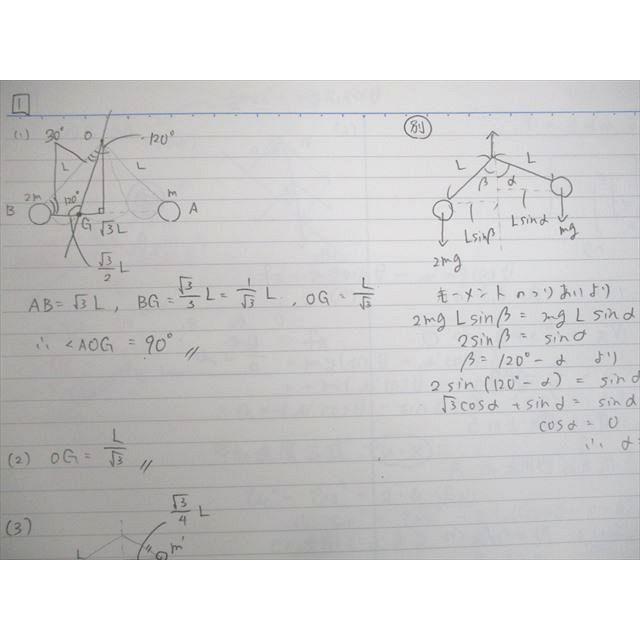 1
(1)
30° O 120°
L L
2m 120° m
B G √3L A
√3/2 L
AB = √3 L, BG = √3/3 L = 1/√3 L, OG = L/√3
∴ ∠AOG = 90° 〃
(2) OG = L/√3 〃
(3)
√3/4 L
L m'
別
L L
β α
Lsinβ Lsinα
2mg mg
モーメントのつりあいより
2mg L sinβ = mg L sinα
2sinβ = sinα
β = 120° - α より
2 sin (120° - α) = sinα
√3cosα + sinα = sinα
cosα = 0
∴ α =